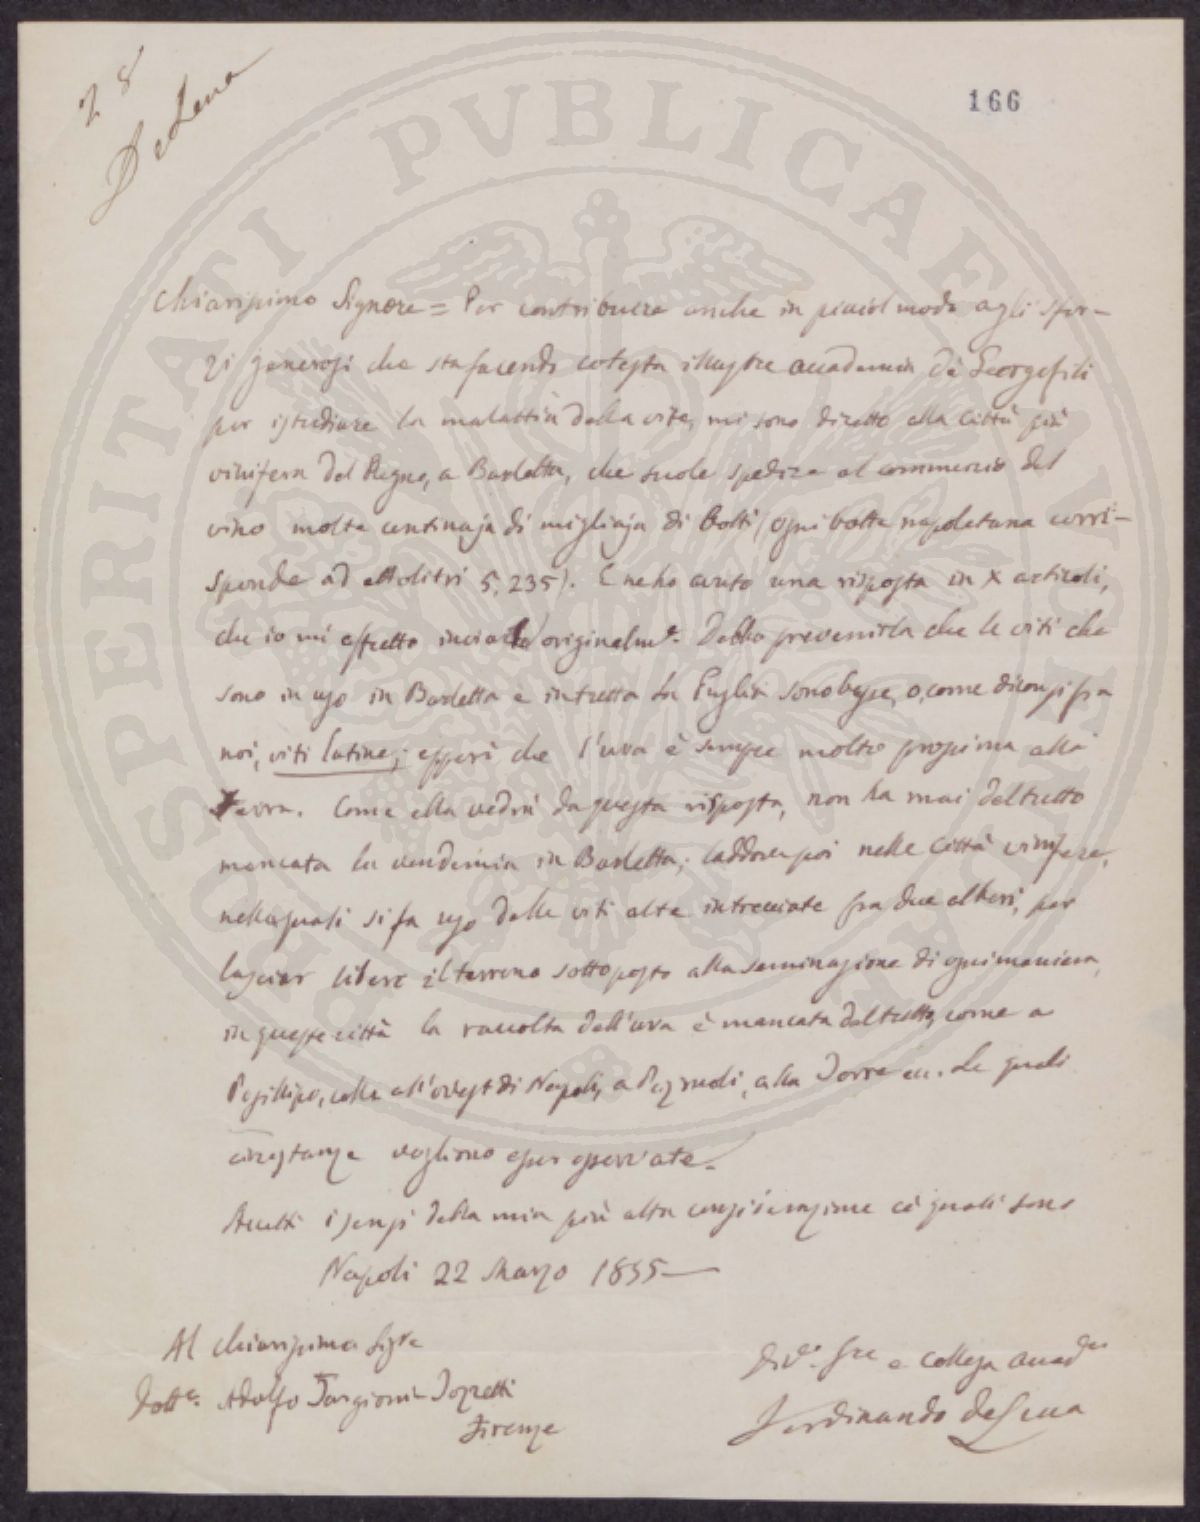 28
De Luca
166
PROSPERITATI PVBLICAE AVGENDAE
Chiarissimo Signore = Per contribuire anche in piccol modo agli sfor-
zi generosi che sta facendo cotesta illustre accademia de' Georgofili
per istudiare la malattia della vite, mi sono diretto alla Città più
vinifera del Regno, a Barletta, che suole spedire al commercio del
vino molte centinaja di migliaja di botti (ogni botte napoletana corri-
sponde ad ettolitri 5,235). E ne ho avuto una risposta in X articoli,
che io mi affretto inviarle originalmte. Debbo prevenirla che le viti che
sono in uso in Barletta e in tutta la Puglia sono basse, o, come diconsi fra
noi, viti latine; epperò che l'uva è sempre molto prossima alla
Terra. Come ella vedrà da questa risposta, non ha mai del tutto
mancata la vendemia in Barletta; laddove poi nelle città vinifere,
nelle quali si fa uso delle viti alte intrecciate fra due alberi, per
lasciar libero il terreno sottoposto alla seminagione di ogni maniera,
in queste città la raccolta dell'uva è mancata del tutto, come a
Posillipo, colle all'ovest di Napoli, a Pozzuoli, alla Torre ec. Le quali
circostanze vogliono esser osservate.
Accetti i sensi della mia più alta considerazione co' quali sono
Napoli 22 Marzo 1855
Al Chiarissimo Sigre
Dotte. Adolfo Targioni-Tozzetti
Firenze
e collega
Ferdinando de Luca